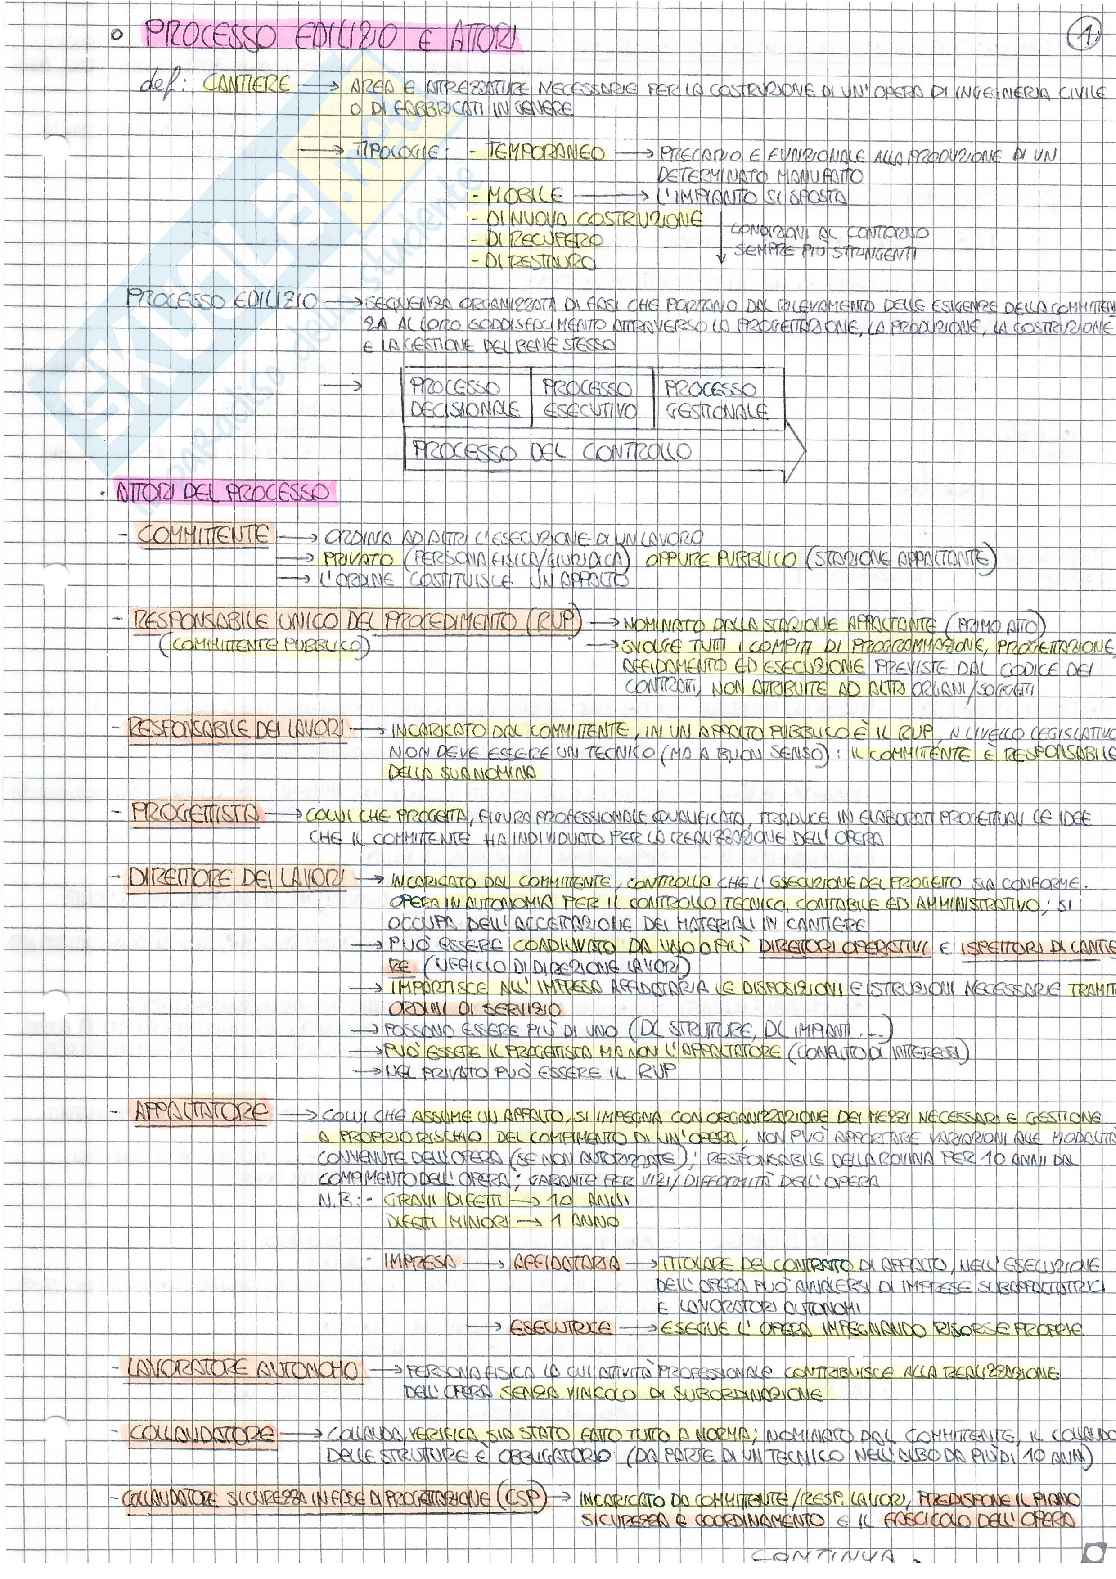 ° PROCESSO EDILIZIO E ATTORI
1.
def: CANTIERE → AREA E ATTREZZATURE NECESSARIE PER LA COSTRUZIONE DI UN'OPERA DI INGEGNERIA CIVILE
O DI FABBRICATI IN GENERE
→ TIPOLOGIE: - TEMPORANEO → PRECARIO E FUNZIONALE ALLA PRODUZIONE DI UN
DETERMINATO MANUFATTO
- MOBILE → L'IMPIANTO SI SPOSTA
- DI NUOVA COSTRUZIONE
CONDIZIONI AL CONTORNO
- DI RECUPERO
SEMPRE PIÙ STRINGENTI
- DI RESTAURO
PROCESSO EDILIZIO → SEQUENZA ORGANIZZATA DI FASI CHE PORTANO DAL RILEVAMENTO DELLE ESIGENZE DELLA COMMITTEN
ZA AL LORO SODDISFACIMENTO ATTRAVERSO LA PROGETTAZIONE, LA PRODUZIONE, LA COSTRUZIONE
E LA GESTIONE DEL BENE STESSO
→ PROCESSO DECISIONALE PROCESSO ESECUTIVO PROCESSO GESTIONALE
PROCESSO DEL CONTROLLO
· ATTORI DEL PROCESSO
- COMMITTENTE → ORDINA AD ALTRI L'ESECUZIONE DI UN LAVORO
→ PRIVATO (PERSONA FISICA/GIURIDICA) OPPURE PUBBLICO (STAZIONE APPALTANTE)
→ L'ORDINE COSTITUISCE UN APPALTO
- RESPONSABILE UNICO DEL PROCEDIMENTO (RUP) → NOMINATO DALLA STAZIONE APPALTANTE (PRIMO ATTO)
(COMMITTENTE PUBBLICO) → SVOLGE TUTTI I COMPITI DI PROGRAMMAZIONE, PROGETTAZIONE,
AFFIDAMENTO ED ESECUZIONE PREVISTE DAL CODICE DEI
CONTRATTI, NON ATTRIBUITE AD ALTRI ORGANI/SOGGETTI
- RESPONSABILE DEI LAVORI → INCARICATO DAL COMMITTENTE, IN UN APPALTO PUBBLICO È IL RUP, A LIVELLO LEGISLATIVO
NON DEVE ESSERE UN TECNICO (MA A BUON SENSO): IL COMMITTENTE È RESPONSABILE
DELLA SUA NOMINA
- PROGETTISTA → COLUI CHE PROGETTA, FIGURA PROFESSIONALE QUALIFICATA, TRADUCE IN ELABORATI PROGETTUALI LE IDEE
CHE IL COMMITENTE HA INDIVIDUATO PER LA REALIZZAZIONE DELL'OPERA
- DIRETTORE DEI LAVORI → INCARICATO DAL COMMITTENTE, CONTROLLA CHE L'ESECUZIONE DEL PROGETTO SIA CONFORME.
OPERA IN AUTONOMIA PER IL CONTROLLO TECNICO, CONTABILE ED AMMINISTRATIVO; SI
OCCUPA DELL'ACCETTAZIONE DEI MATERIALI IN CANTIERE
→ PUÒ ESSERE COADIUVATO DA UNO O PIÙ DIRETTORI OPERATIVI E ISPETTORI DI CANTIE
RE (UFFICIO DI DIREZIONE LAVORI)
→ IMPARTISCE ALL'IMPRESA AFFIDATARIA LE DISPOSIZIONI E ISTRUZIONI NECESSARIE TRAMITE
ORDINI DI SERVIZIO
→ POSSONO ESSERE PIÙ DI UNO (DL STRUTTURE, DL IMPIANTI....)
→ PUÒ ESSERE IL PROGETTISTA MA NON L'APPALTATORE (CONFLITTO DI INTERESSI)
→ NEL PRIVATO PUÒ ESSERE IL RUP
- APPALTATORE → COLUI CHE ASSUME UN APPALTO, SI IMPEGNA CON ORGANIZZAZIONE DEI MEZZI NECESSARI E GESTIONE
A PROPRIO RISCHIO DEL COMPIMENTO DI UN'OPERA, NON PUÒ APPORTARE VARIAZIONI ALLE MODALITÀ
CONVENUTE DELL'OPERA (SE NON AUTORIZZATE); RESPONSABILE DELLA ROVINA PER 10 ANNI DAL
COMPIMENTO DELL'OPERA; GARANTE PER VIZI/DIFFORMITÀ DELL'OPERA
N.B.: - GRAVI DIFETTI → 10 ANNI
DIFETTI MINORI → 1 ANNO
- IMPRESA → AFFIDATARIA → TITOLARE DEL CONTRATTO DI APPALTO, NELL'ESECUZIONE
DELL'OPERA PUÒ AVVALERSI DI IMPRESE SUBAPPALTATRICI
E LAVORATORI AUTONOMI
→ ESECUTRICE → ESEGUE L'OPERA IMPEGNANDO RISORSE PROPRIE
- LAVORATORE AUTONOMO → PERSONA FISICA LA CUI ATTIVITÀ PROFESSIONALE CONTRIBUISCE ALLA REALIZZAZIONE
DELL'OPERA SENZA VINCOLO DI SUBORDINAZIONE
- COLLAUDATORE → COLLAUDA, VERIFICA SIA STATO FATTO TUTTO A NORMA; NOMINATO DAL COMMITTENTE, IL COLLAUDO
DELLE STRUTTURE È OBBLIGATORIO (DA PARTE DI UN TECNICO NELL'ALBO DA PIÙ DI 10 ANNI)
- COLLAUDATORE SICUREZZA IN FASE DI PROGETTAZIONE (CSP) → INCARICATO DA COMMITTENTE/RESP. LAVORI, PREDISPONE IL PIANO
SICUREZZA E COORDINAMENTO E IL FASCICOLO DELL'OPERA
CONTINUA.
SKUOLA.net
il paradiso dello studente